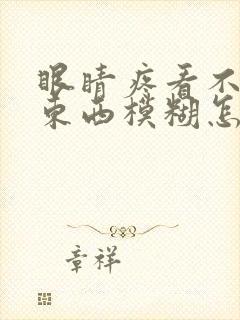 眼睛疼看不
东西模糊怎
章祥